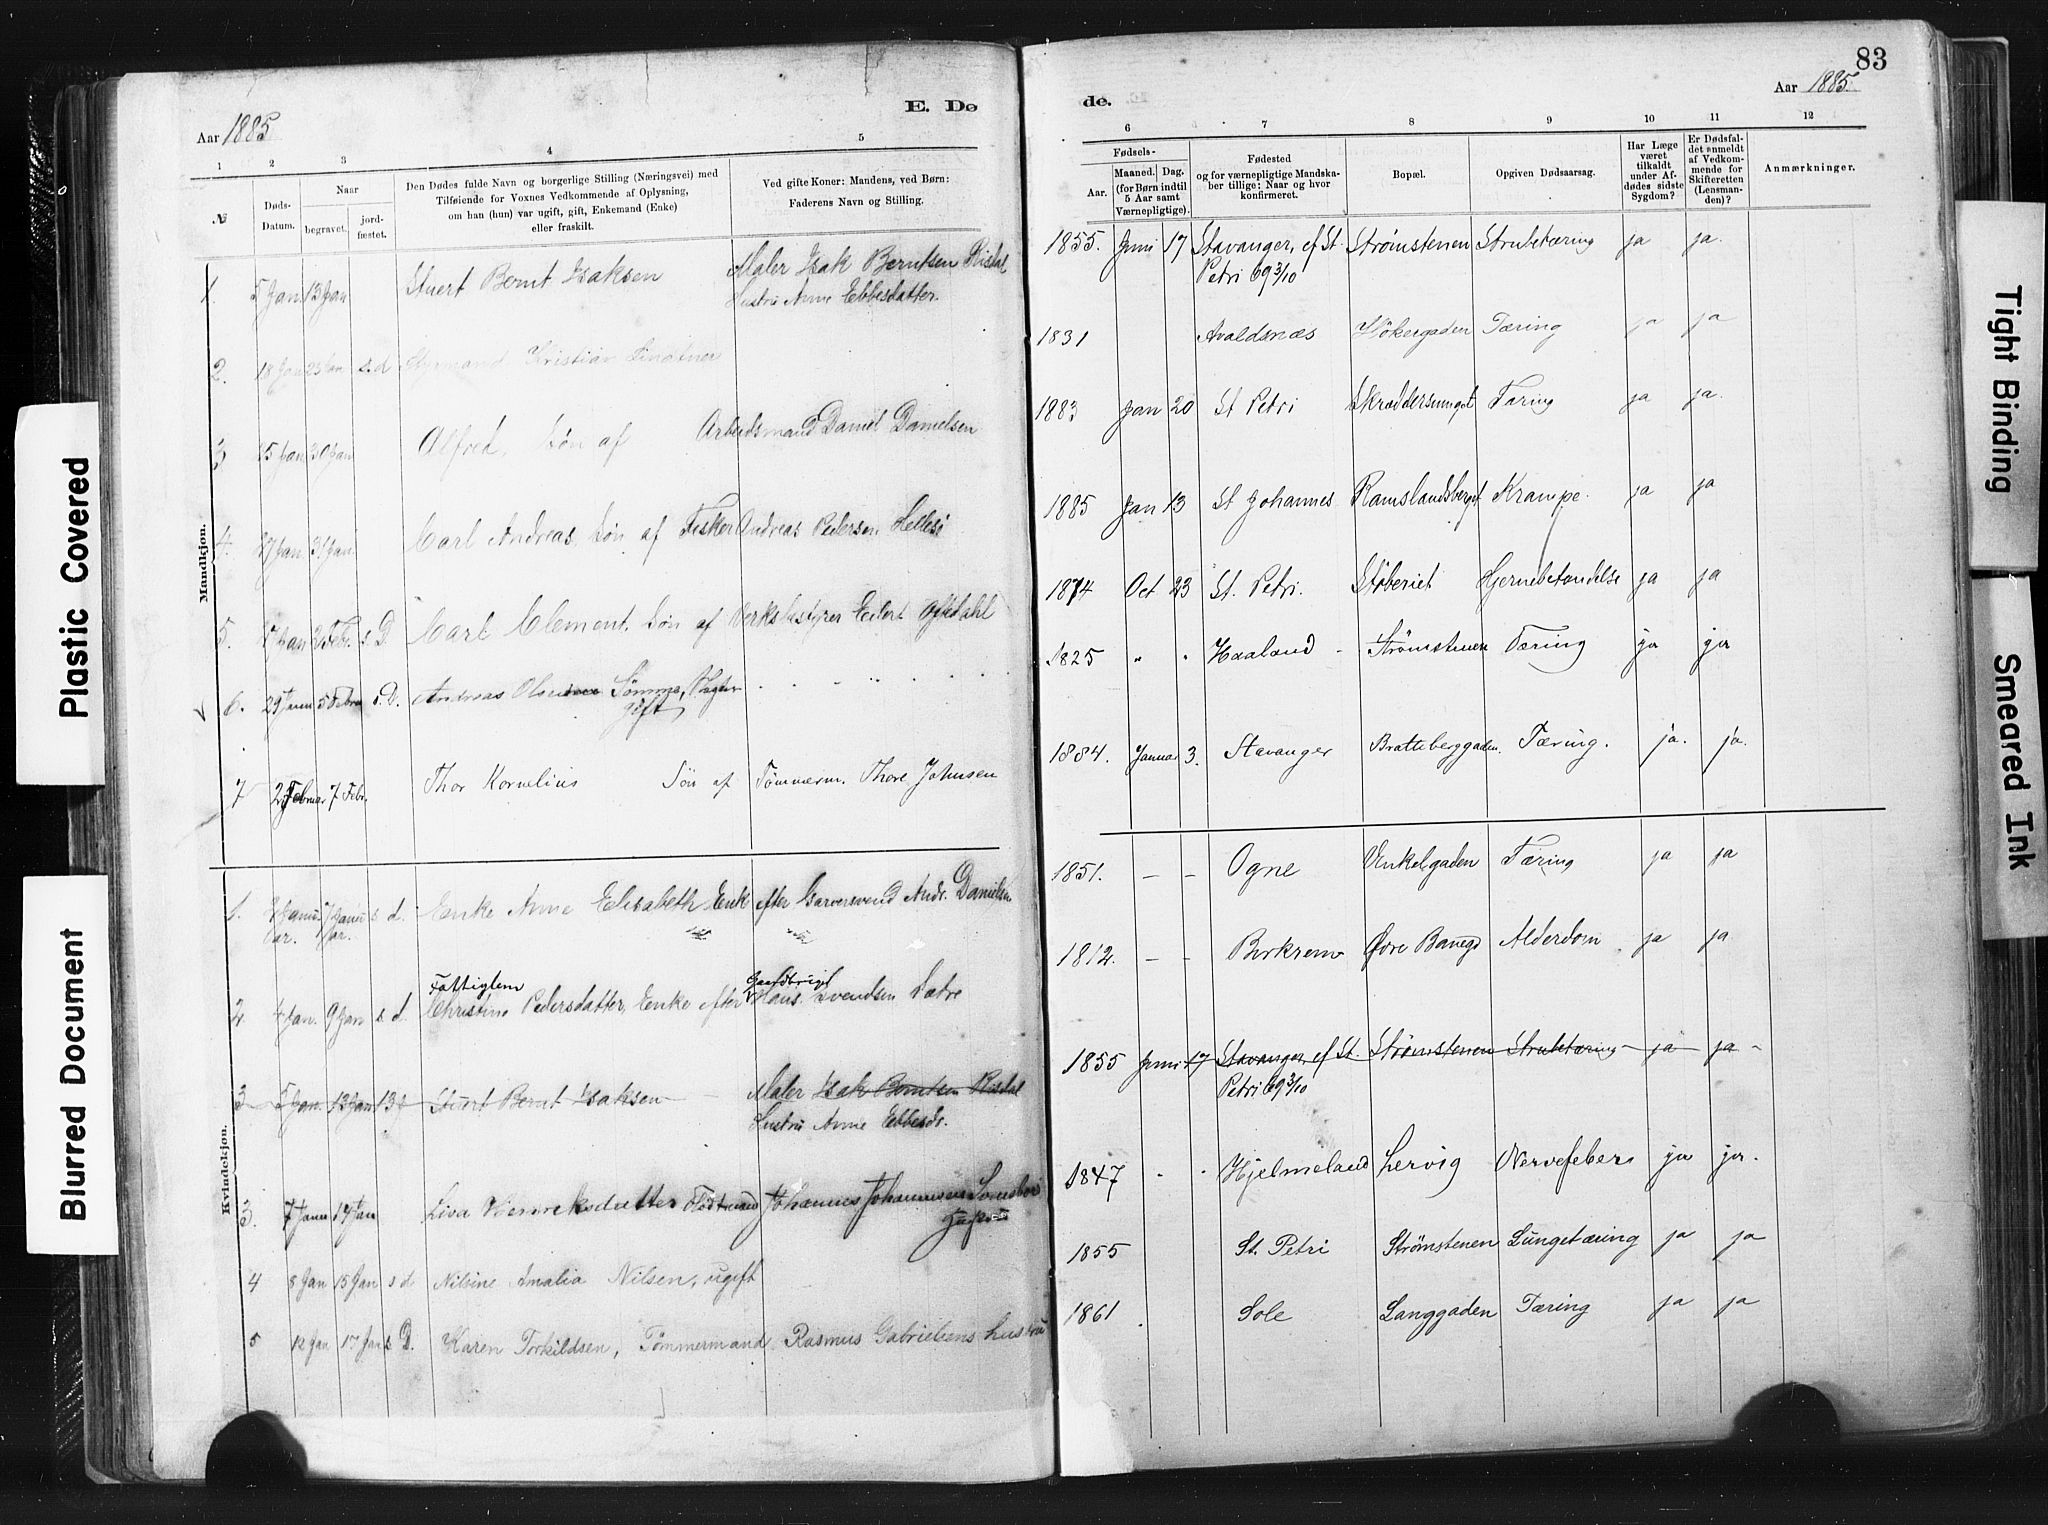 Plastic Covered
Blurred Document
Tight Binding
Smeared Ink
83
Aar 1885
E. Dø
de.
Aar 1885.
1 2 3 4 5
6 7 8 9 10 11 12
№
Døds-Datum.
Naar
begravet.
jord-fæstet.
Den Dødes fulde Navn og borgerlige Stilling (Næringsvei) med
Tilføiende for Voxnes Vedkommende af Oplysning,
om han (hun) var ugift, gift, Enkemand (Enke)
eller fraskilt.
Ved gifte Koner: Mandens, ved Børn:
Faderens Navn og Stilling.
Fødsels-
Aar.
Maaned. Dag.
(for Børn indtil
5 Aar samt
Værnepligtige).
Fødested
og for værnepligtige Mandska-
ber tillige: Naar og hvor
konfirmeret.
Bopæl.
Opgiven Dødsaarsag.
Har Læge
været
tilkaldt
under Af-
dødes sidste
Sygdom?
Er Dødsfal-
det anmeldt
af Vedkom-
mende for
Skifteretten
(Lensman-
den)?
Anmærkninger.
Mandkjøn.
1. 5 Jan 13 Jan Stuert Bernt Isaksen Maler Isak Berntsen Ristal
Hustru Anne Ebbesdatter.
1855. Juni 17 Stavanger, cf St. Strømstenen Strubetæring ja ja.
Petri 69 3/10
2. 18 Jan 25 Jan s. d Styrmand Kristian Lindtner
1831 Avaldsnæs Høkergaden Tæring ja ja
3 15 Jan 30 Jan Alfred, Søn af Arbeidsmand Daniel Danielsen
1883 Jan 20 St Petri Skræddersmuget Tæring ja ja.
4. 27 Jan 31 Jan Carl Andreas, Søn af Fisker Andreas Pedersen Hellesø
1885 Jan 13 St Johannes Ramslandsberget Krampe. ja ja
5. 27 Jan 2 Febr. s. D Carl Clement, Søn af Verksbestyrer Eilert Oftedahl
1874 Oct 23 St. Petri. Støberiet Hjernebetændelse ja ja
6. 29 Janu 5 Febru s. D. Andreas Olsen Sømme, Vægter
gift
1825 " " Haaland Strømstenen Tæring ja ja
7 2 Februar 7 Febr. Thor Kornelius Søn af Tømmerm. Thore Johnsen
1884. Januar 3. Stavanger Bratteberggaden. Tæring. ja. ja.
Kvindekjøn.
1. 2 Janu 7 Janu s d. Enke Anne Elisabeth Enk efter Garversvend Andr. Danielsen
ar. ar.
1851. — — Ogne Venkelgaden Tæring ja ja
Fattiglem Gaardbrugr
2. 4 Jan. 9 Jan s. d. Christine Pedersdatter, Enke efter Hans Svendsen Sætre
1812. — — Birkrem Øvre Banegd Alderdom ja ja
3 5 Jan. 13 Jan 13 J Stuert Bernt Isaksen Maler Isak Berntsen Ristal
Hustru Anne Ebbesdr.
1855 Juni 17 Stavanger, cf St. Strømstenen Strubetæring ja ja
Petri 69 3/10
3. 7 Janu 14 Jan Lisa Henreksdatter Johannes Johannesen
1847 " " Hjelmeland Lervig Nervefeber ja ja.
4 8 Jan 15 Jan s d Nilsine Amalia Nilsen, ugift
1855 St. Petri Strømstenen Lungetæring ja ja
5 12 Jan 17 Jan s D. Karen Torkildsen, Tømmermand Rasmus Gabrielsens hustru
1861 Sole Langgaden Tæring ja ja